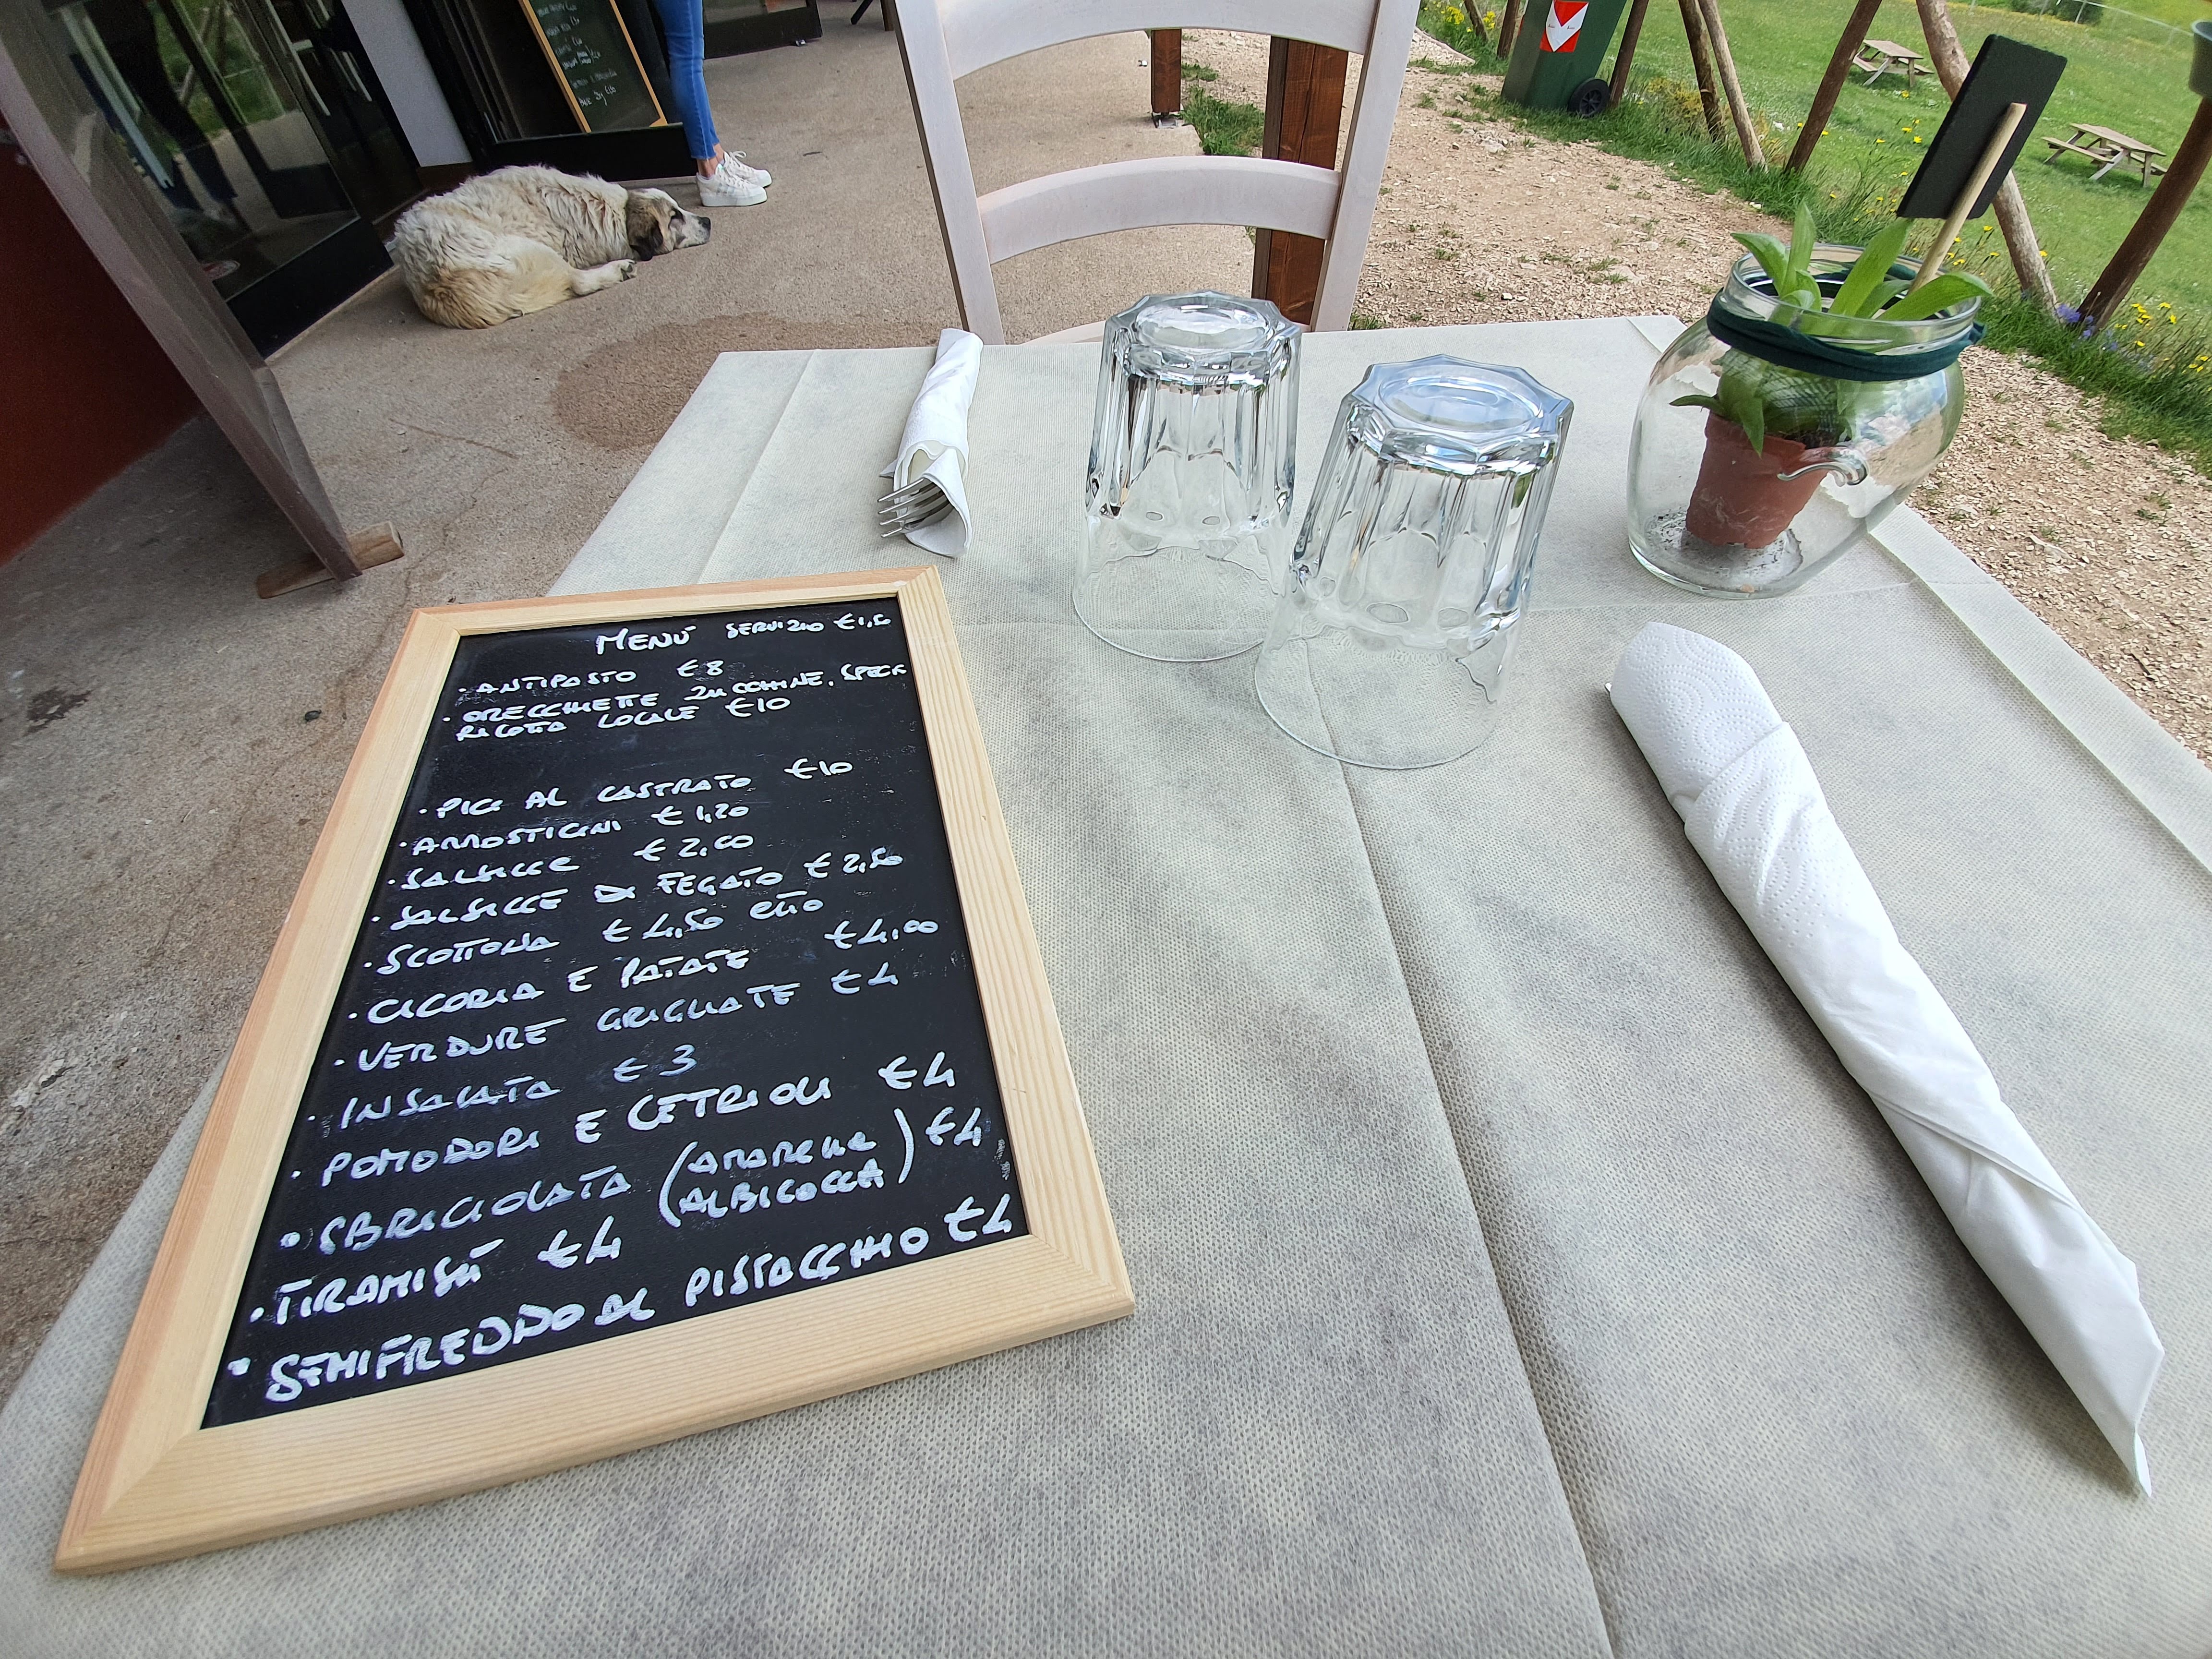 MENÙ SERVIZIO €1,50
· ANTIPASTO €8
· ORECCHIETTE ZUCCHINE, SPECK
RICOTTA LOCALE €10
· PICI AL CASTRATO €10
· ARROSTICINI €1,20
· SALSICCE €2,00
· SALSICCE DI FEGATO €2,50
· SCOTTONA €4,50 ETTO
· CICORIA E PATATE €4,00
· VERDURE GRIGLIATE €4
· INSALATA €3
· POMODORI E CETRIOLI €4
· SBRICIOLATA (AMARENE ALBICOCCA) €4
· TIRAMISÙ €4
· SEMIFREDDO AL PISTACCHIO €4